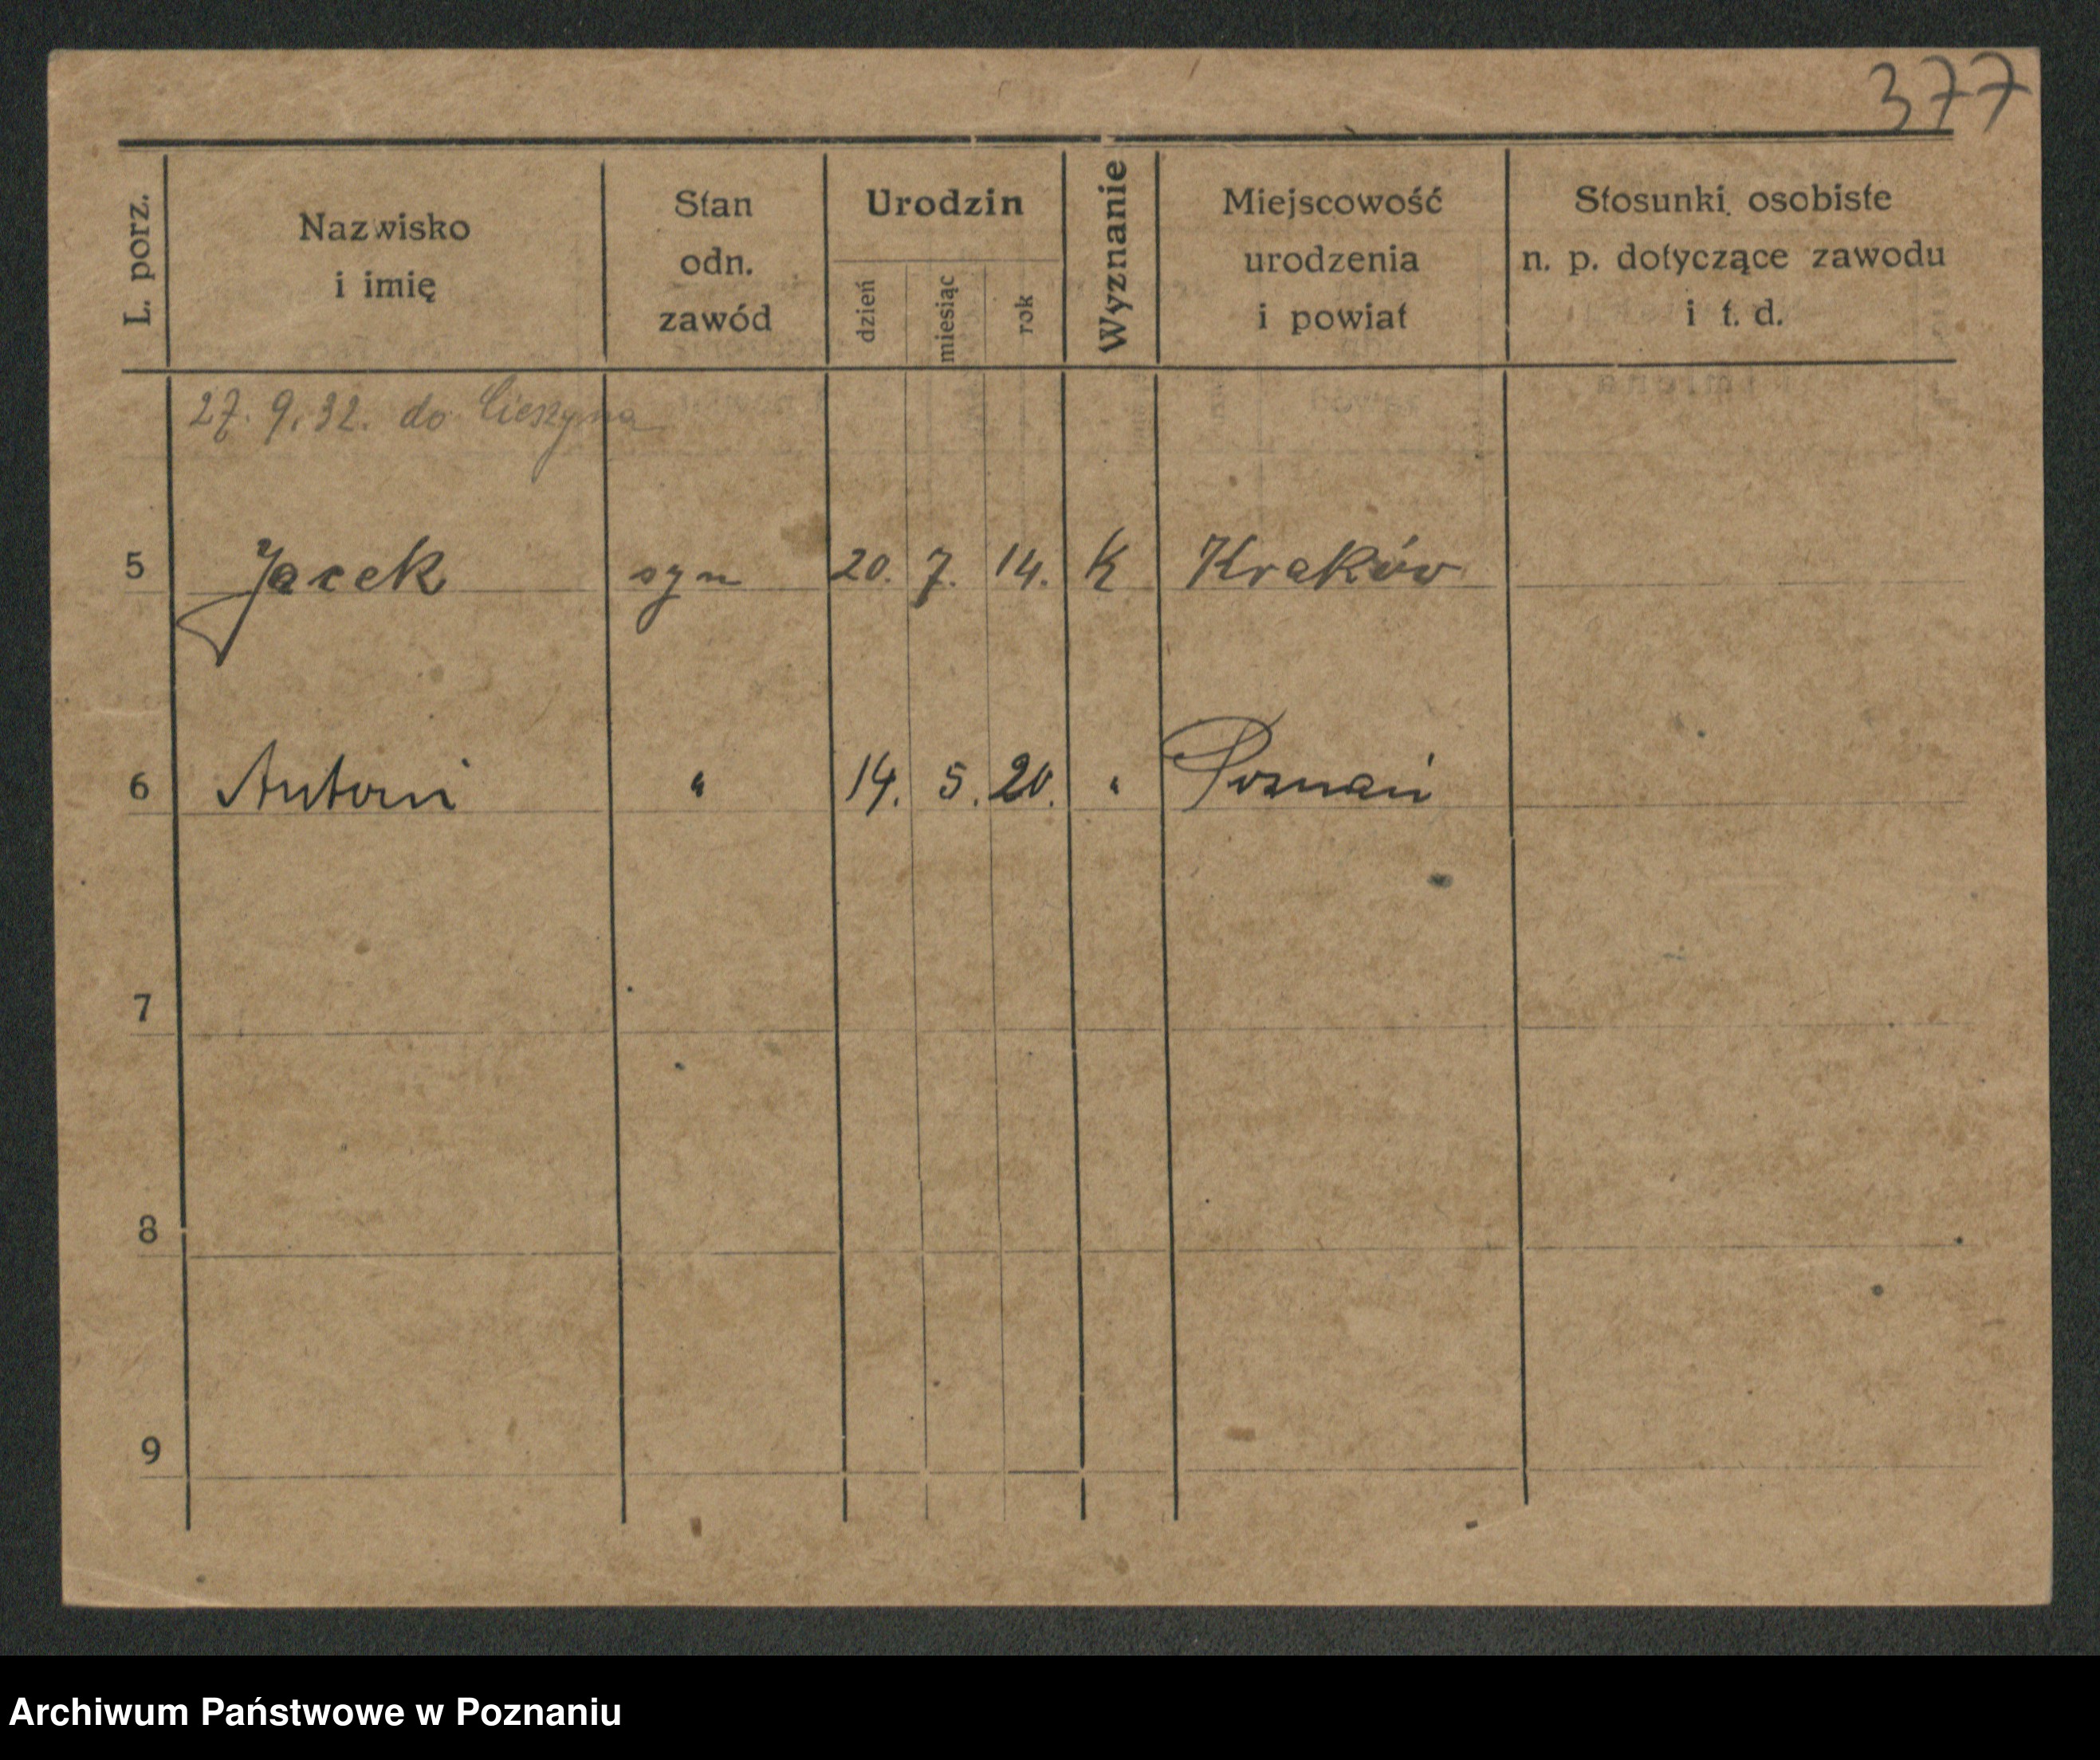 377
L. porz. Nazwisko i imię Stan odn. zawód Urodzin dzień miesiąc rok Wyznanie Miejscowość urodzenia i powiat Stosunki osobiste n. p. dotyczące zawodu i t. d.
27. 9. 32. do Cieszyna
5 Jacek syn 20. 7. 14. K Kraków
6 Antoni " 14. 5. 20. " Poznań
7
8
9
Archiwum Państwowe w Poznaniu